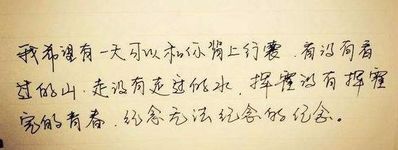 我希望有一天可以和你背上行囊,看没有看
过的山,走没有走过的水,挥霍没有挥霍
完的青春,纪念无法纪念的纪念。